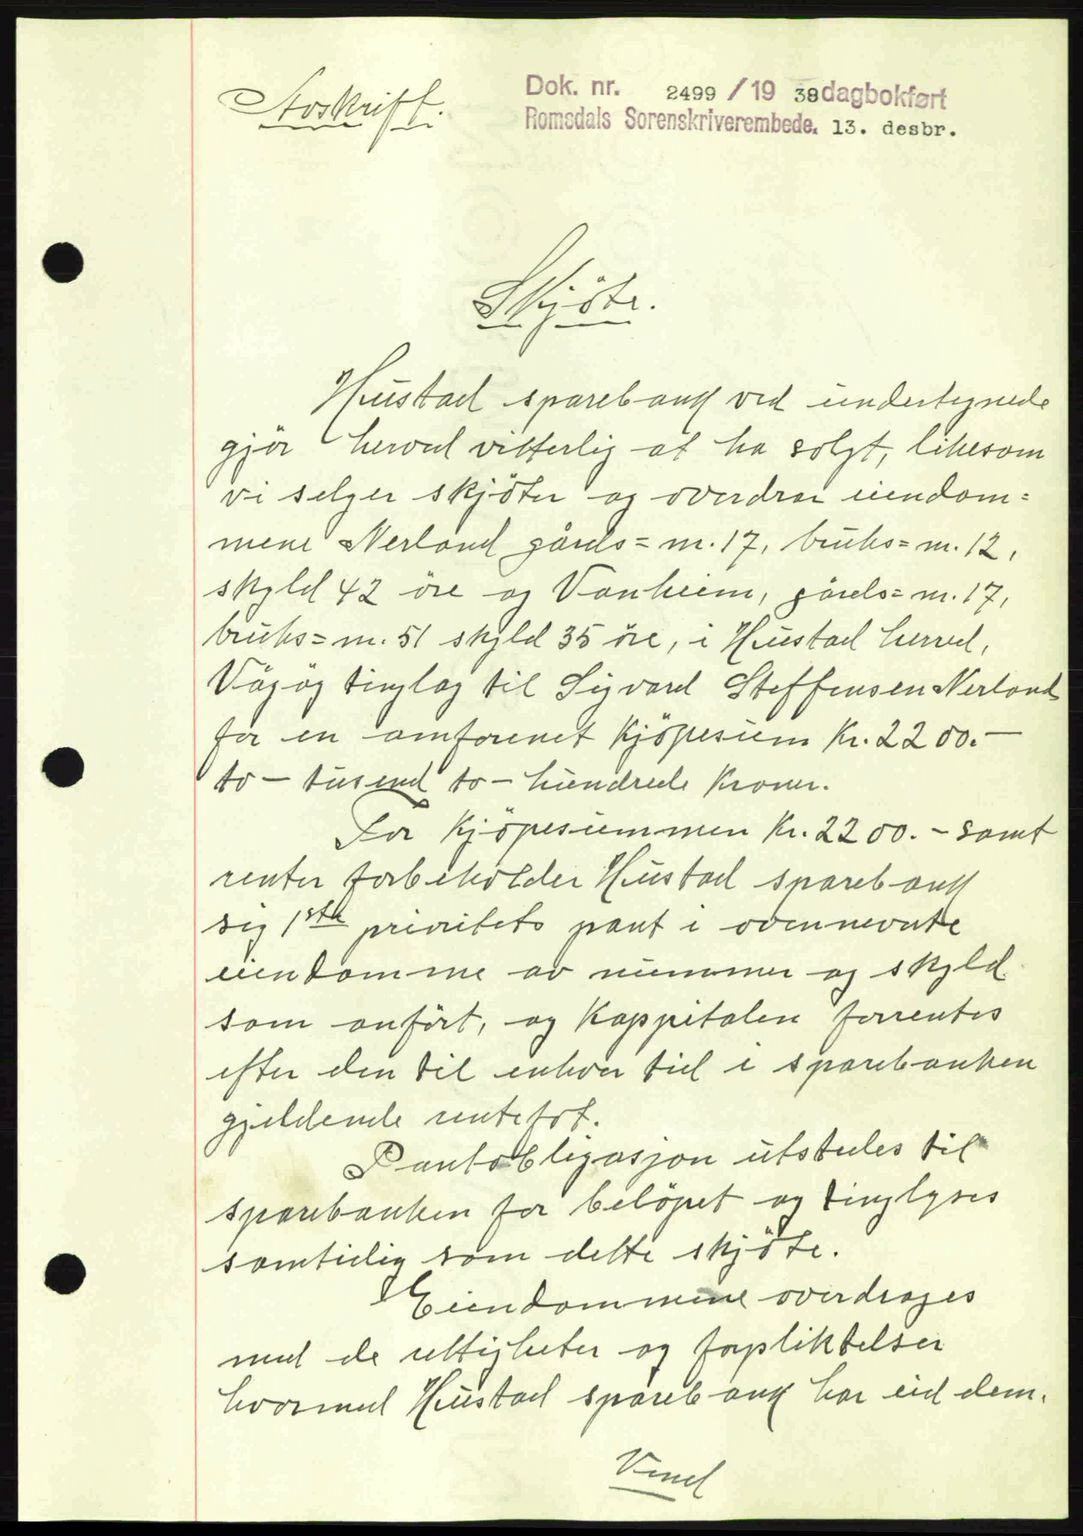 Avskrift.
Dok. nr. 2499 /19 38 dagbokført
Romsdals Sorenskriverembede. 13. desbr.
Skjöte.
Hustad sparebank ved undertegnede
gjör herved vitterlig at ha solgt, likesom
vi selger skjöter og overdrar eiendom=
mene Nerland gårds=nr. 17, bruks=nr. 12,
skyld 42 öre og Vonheim, gårds=nr. 17,
bruks=nr. 51 skyld 35 öre, i Hustad herred,
Vågöy tinglag til Sigvard Steffensen Nerland
for en omforenet kjöpesum kr. 2200.-
to - tusend to - hundrede kroner.
For kjöpesummen kr. 2200.- samt
renter forbeholder Hustad sparebank
sig 1ste prioritets pant i ovennevnte
eiendomme av nummer og skyld
som anfört, og kappitalen forrentes
efter den til enhver tid i sparebanken
gjeldende rentefot.
Pantobligasjon utstedes til
sparebanken for belöpet og tinglyses
samtidig som dette skjöte.
Eiendommene overdrages
med de rettigheter og forpliktelser
hvormed Hustad sparebank har eid dem.
Vend